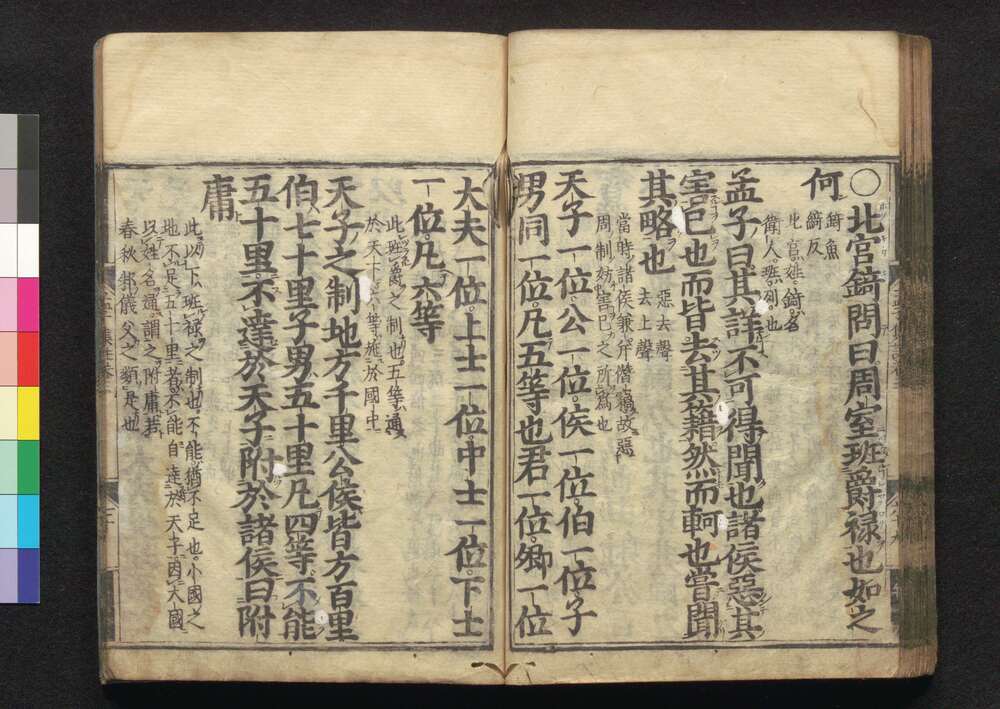 〇北宮錡問曰周室班爵祿也如之
何
錡魚
綺反
北宮姓錡名
衛人班列也
孟子曰其詳不可得聞也諸侯惡其
害己也而皆去其籍然而軻也嘗聞
其略也
惡去聲
去上聲
當時諸侯兼并僭竊故惡
周制妨害己之所爲也
天子一位公一位侯一位伯一位子
男同一位凡五等也君一位卿一位
大夫一位上士一位中士一位下士
一位凡六等
此班爵之制也五等通
於天下六等施於國中
天子之制地方千里公侯皆方百里
伯七十里子男五十里凡四等不能
五十里不達於天子附於諸侯曰附
庸
此以下班祿之制也不能猶不足也小國之
地不足五十里者不能自達於天子因大國
以姓名通謂之附庸若
春秋邾儀父之類是也